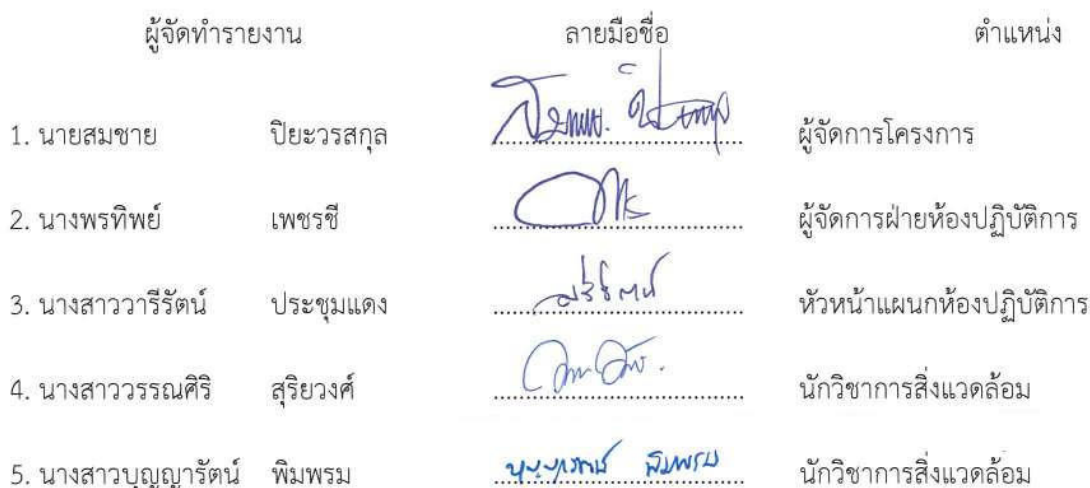 ผู้จัดทำรายงาน ลายมือชื่อ ตำแหน่ง
1. นายสมชาย ปิยะวรสกุล ผู้จัดการโครงการ
2. นางพรทิพย์ เพชรชี ผู้จัดการฝ่ายห้องปฏิบัติการ
3. นางสาววารีรัตน์ ประชุมแดง หัวหน้าแผนกห้องปฏิบัติการ
4. นางสาววรรณศิริ สุริยวงศ์ นักวิชาการสิ่งแวดล้อม
5. นางสาวบุญญารัตน์ พิมพรม บุญญารัตน์ พิมพรม นักวิชาการสิ่งแวดล้อม